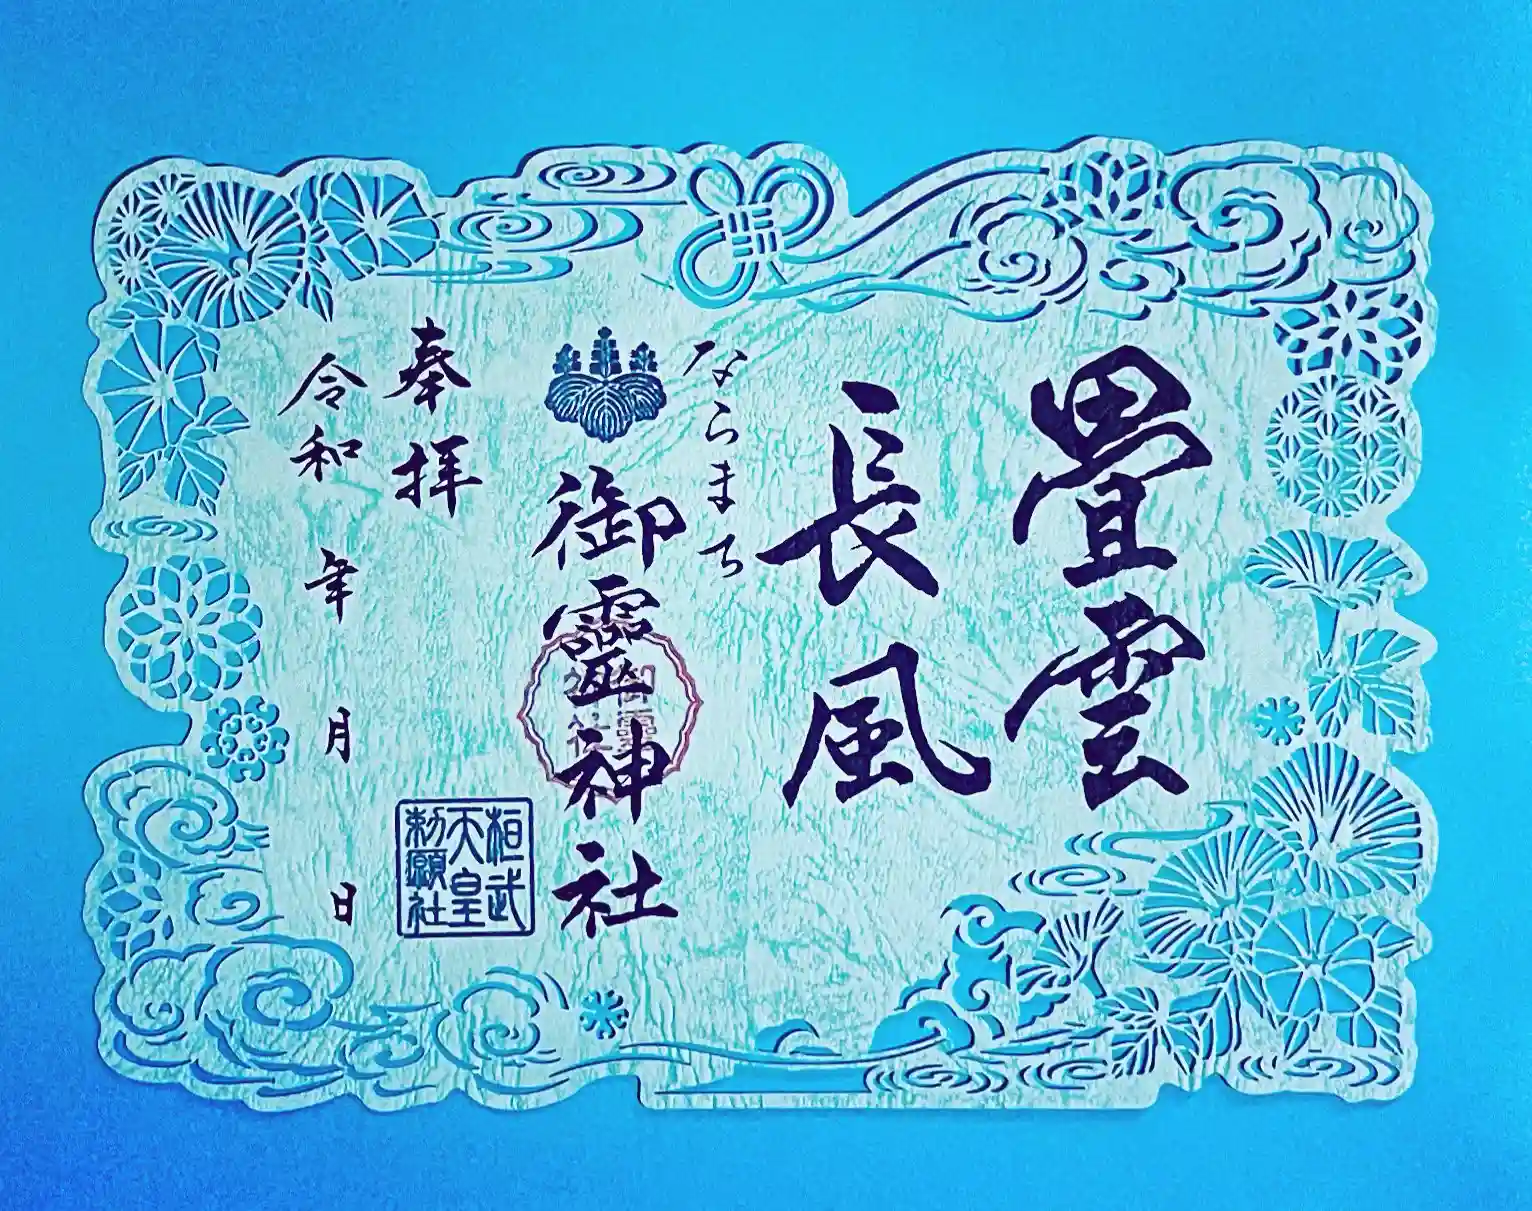 畳雲
長風
ならまち
御霊神社
奉拝
令和 年 月 日
桓武
天皇
勅願社